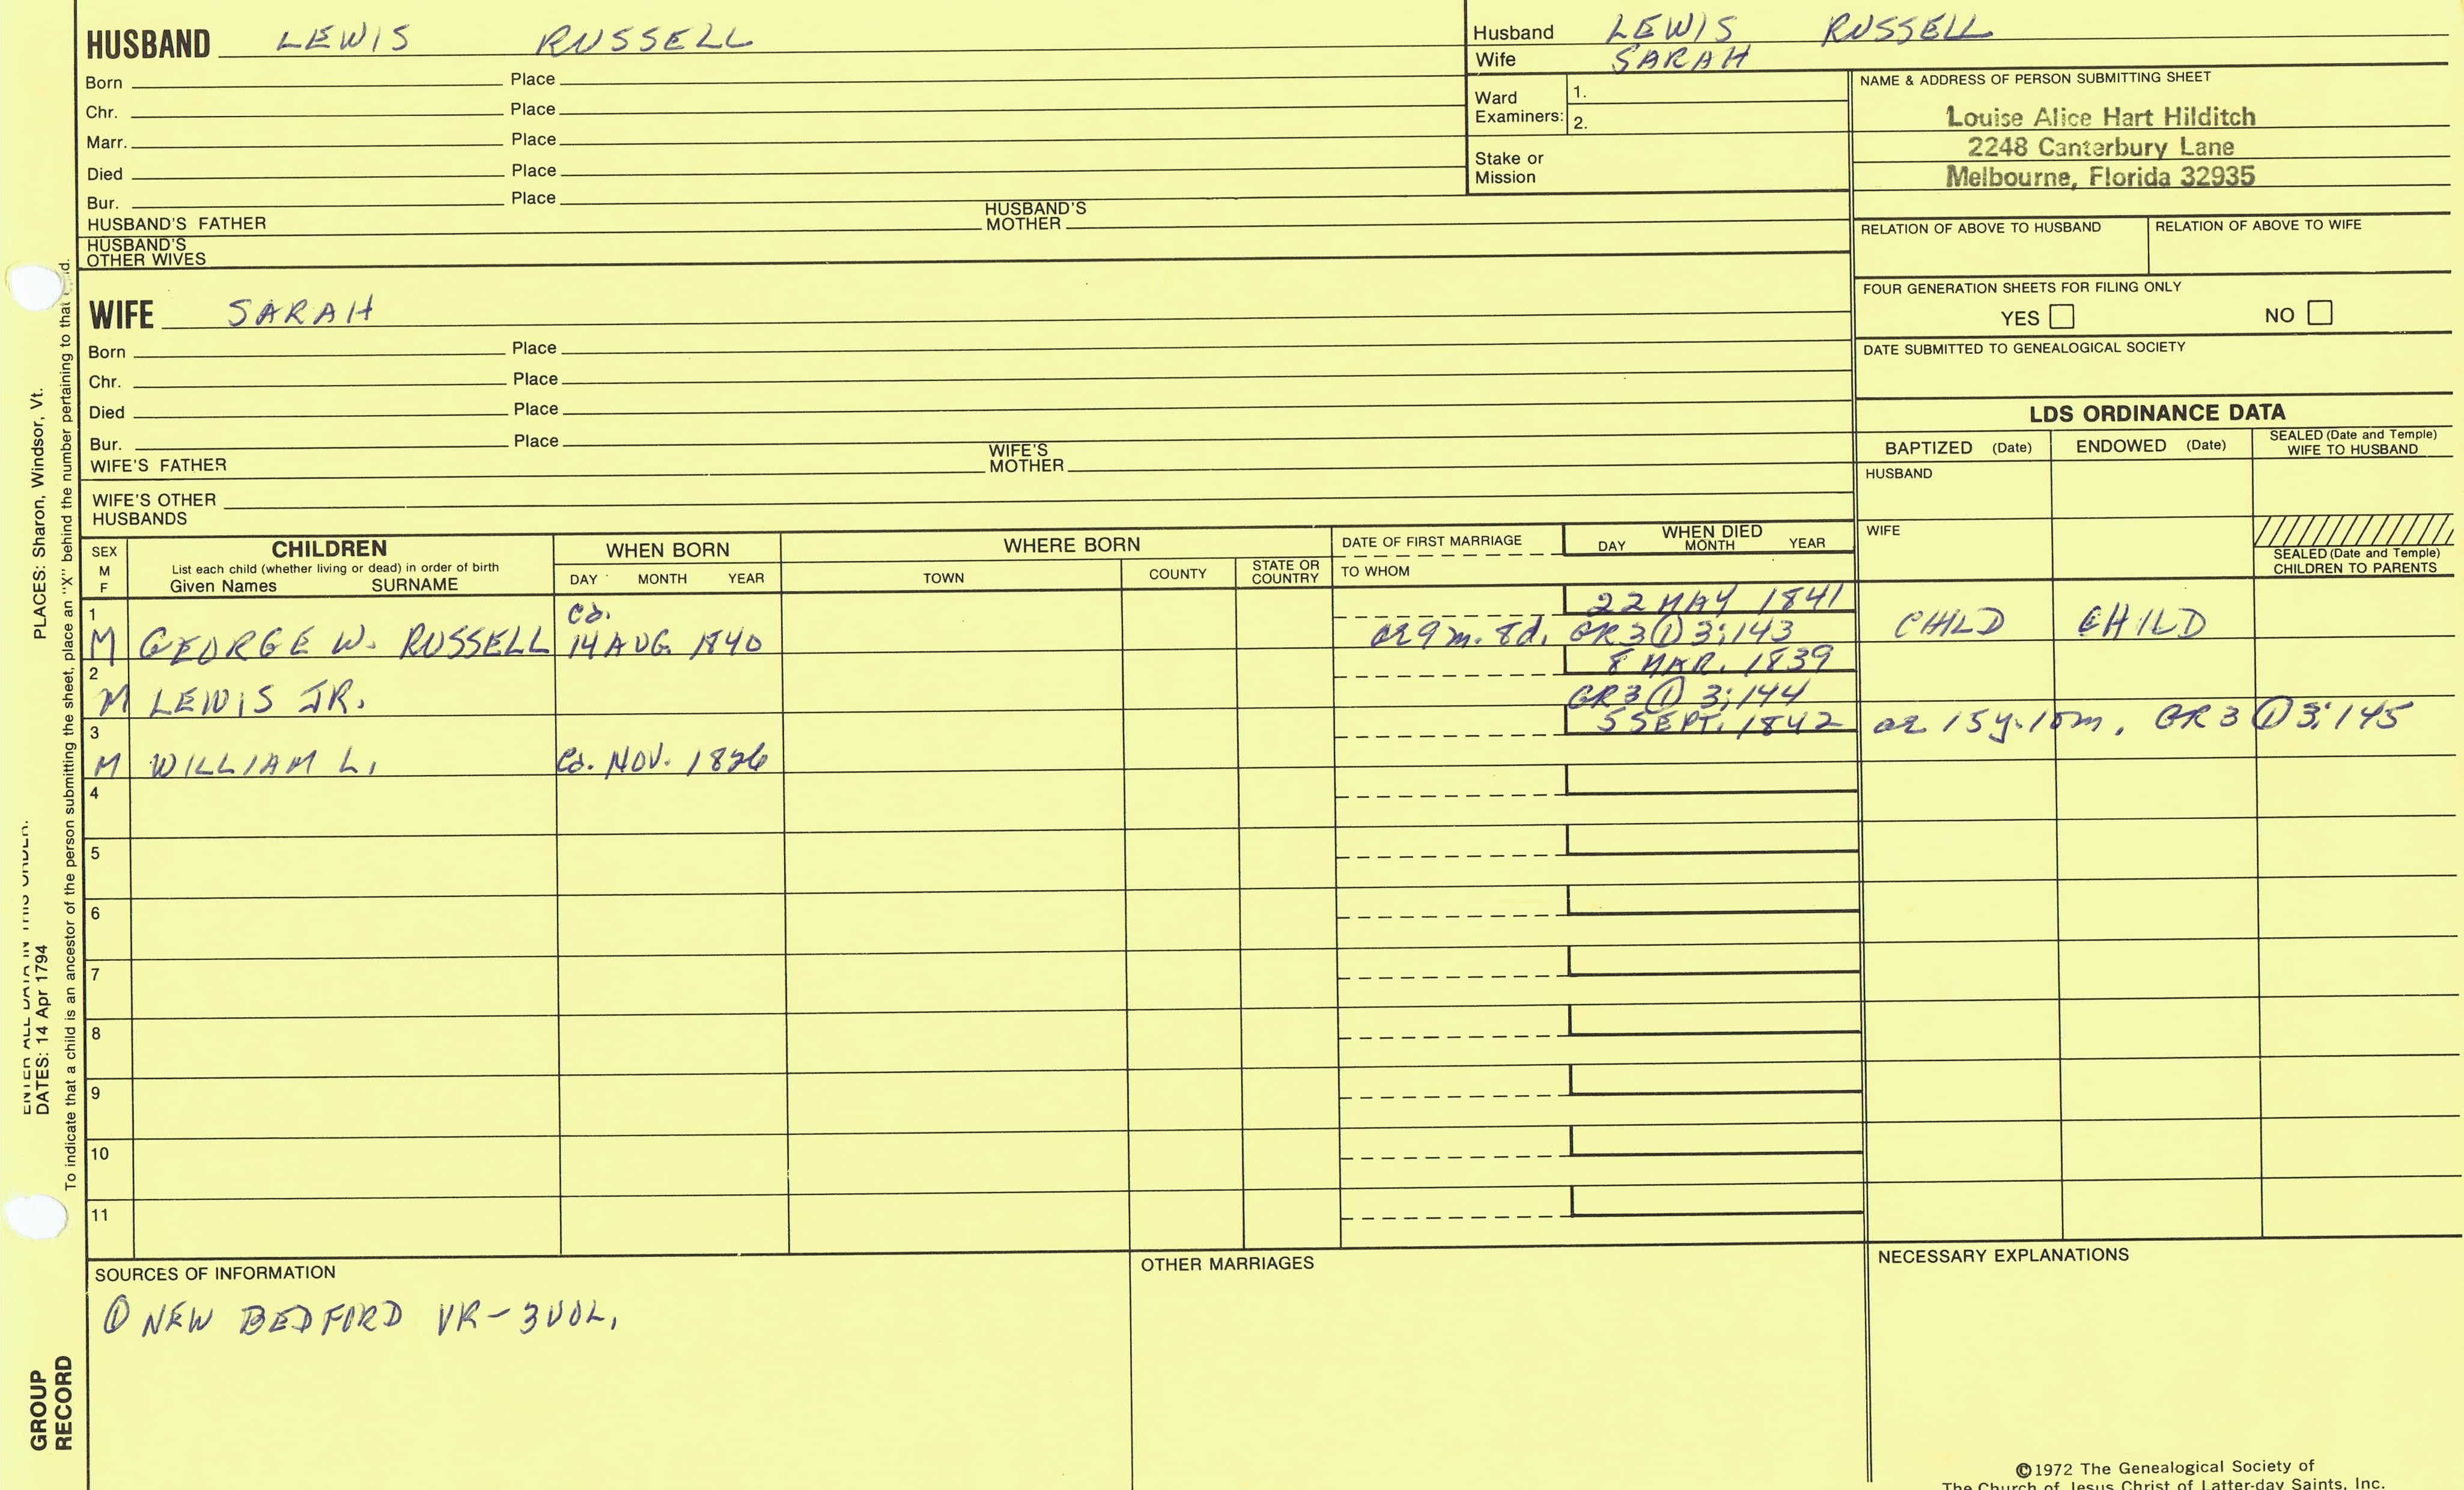 HUSBAND LEWIS RUSSELL
Born Place
Chr. Place
Marr. Place
Died Place
Bur. Place
HUSBAND'S FATHER HUSBAND'S MOTHER
HUSBAND'S OTHER WIVES
Husband LEWIS RUSSELL
Wife SARAH
Ward Examiners: 1.
2.
Stake or Mission
NAME & ADDRESS OF PERSON SUBMITTING SHEET
Louise Alice Hart Hilditch
2248 Canterbury Lane
Melbourne, Florida 32935
RELATION OF ABOVE TO HUSBAND RELATION OF ABOVE TO WIFE
FOUR GENERATION SHEETS FOR FILING ONLY
YES NO
DATE SUBMITTED TO GENEALOGICAL SOCIETY
WIFE SARAH
Born Place
Chr. Place
Died Place
Bur. Place
WIFE'S FATHER WIFE'S MOTHER
WIFE'S OTHER HUSBANDS
LDS ORDINANCE DATA
BAPTIZED (Date) ENDOWED (Date) SEALED (Date and Temple) WIFE TO HUSBAND
HUSBAND
WIFE
SEALED (Date and Temple) CHILDREN TO PARENTS
SEX M F
CHILDREN
List each child (whether living or dead) in order of birth
Given Names SURNAME
WHEN BORN
DAY MONTH YEAR
WHERE BORN
TOWN COUNTY STATE OR COUNTRY
DATE OF FIRST MARRIAGE
TO WHOM
WHEN DIED
DAY MONTH YEAR
1 Ca. 22 MAY 1841
M GEORGE W. RUSSELL 14 AUG. 1840 ae 9 m. 8d. GR3 ① 3:143 CHILD CHILD
2 8 MAR. 1839
M LEWIS JR. GR3 ① 3:144
3 5 SEPT. 1842 ae 15y.10m. GR3 ① 3:145
M WILLIAM L. Ca. NOV. 1826
4
5
6
7
8
9
10
11
SOURCES OF INFORMATION
① NEW BEDFORD VR-3VOL.
OTHER MARRIAGES
NECESSARY EXPLANATIONS
©1972 The Genealogical Society of
The Church of Jesus Christ of Latter-day Saints, Inc.
ENTER ALL DATA IN THIS ORDER.
DATES: 14 Apr 1794 PLACES: Sharon, Windsor, Vt.
To indicate that a child is an ancestor of the person submitting the sheet, place an "X" behind the number pertaining to that
GROUP RECORD